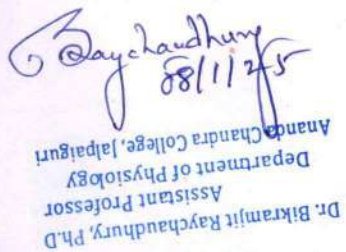 BRaychaudhury
08/1/25
Dr. Bikramjit Raychaudhury, Ph.D
Assistant Professor
Department of Physiology
Ananda Chandra College, Jalpaiguri